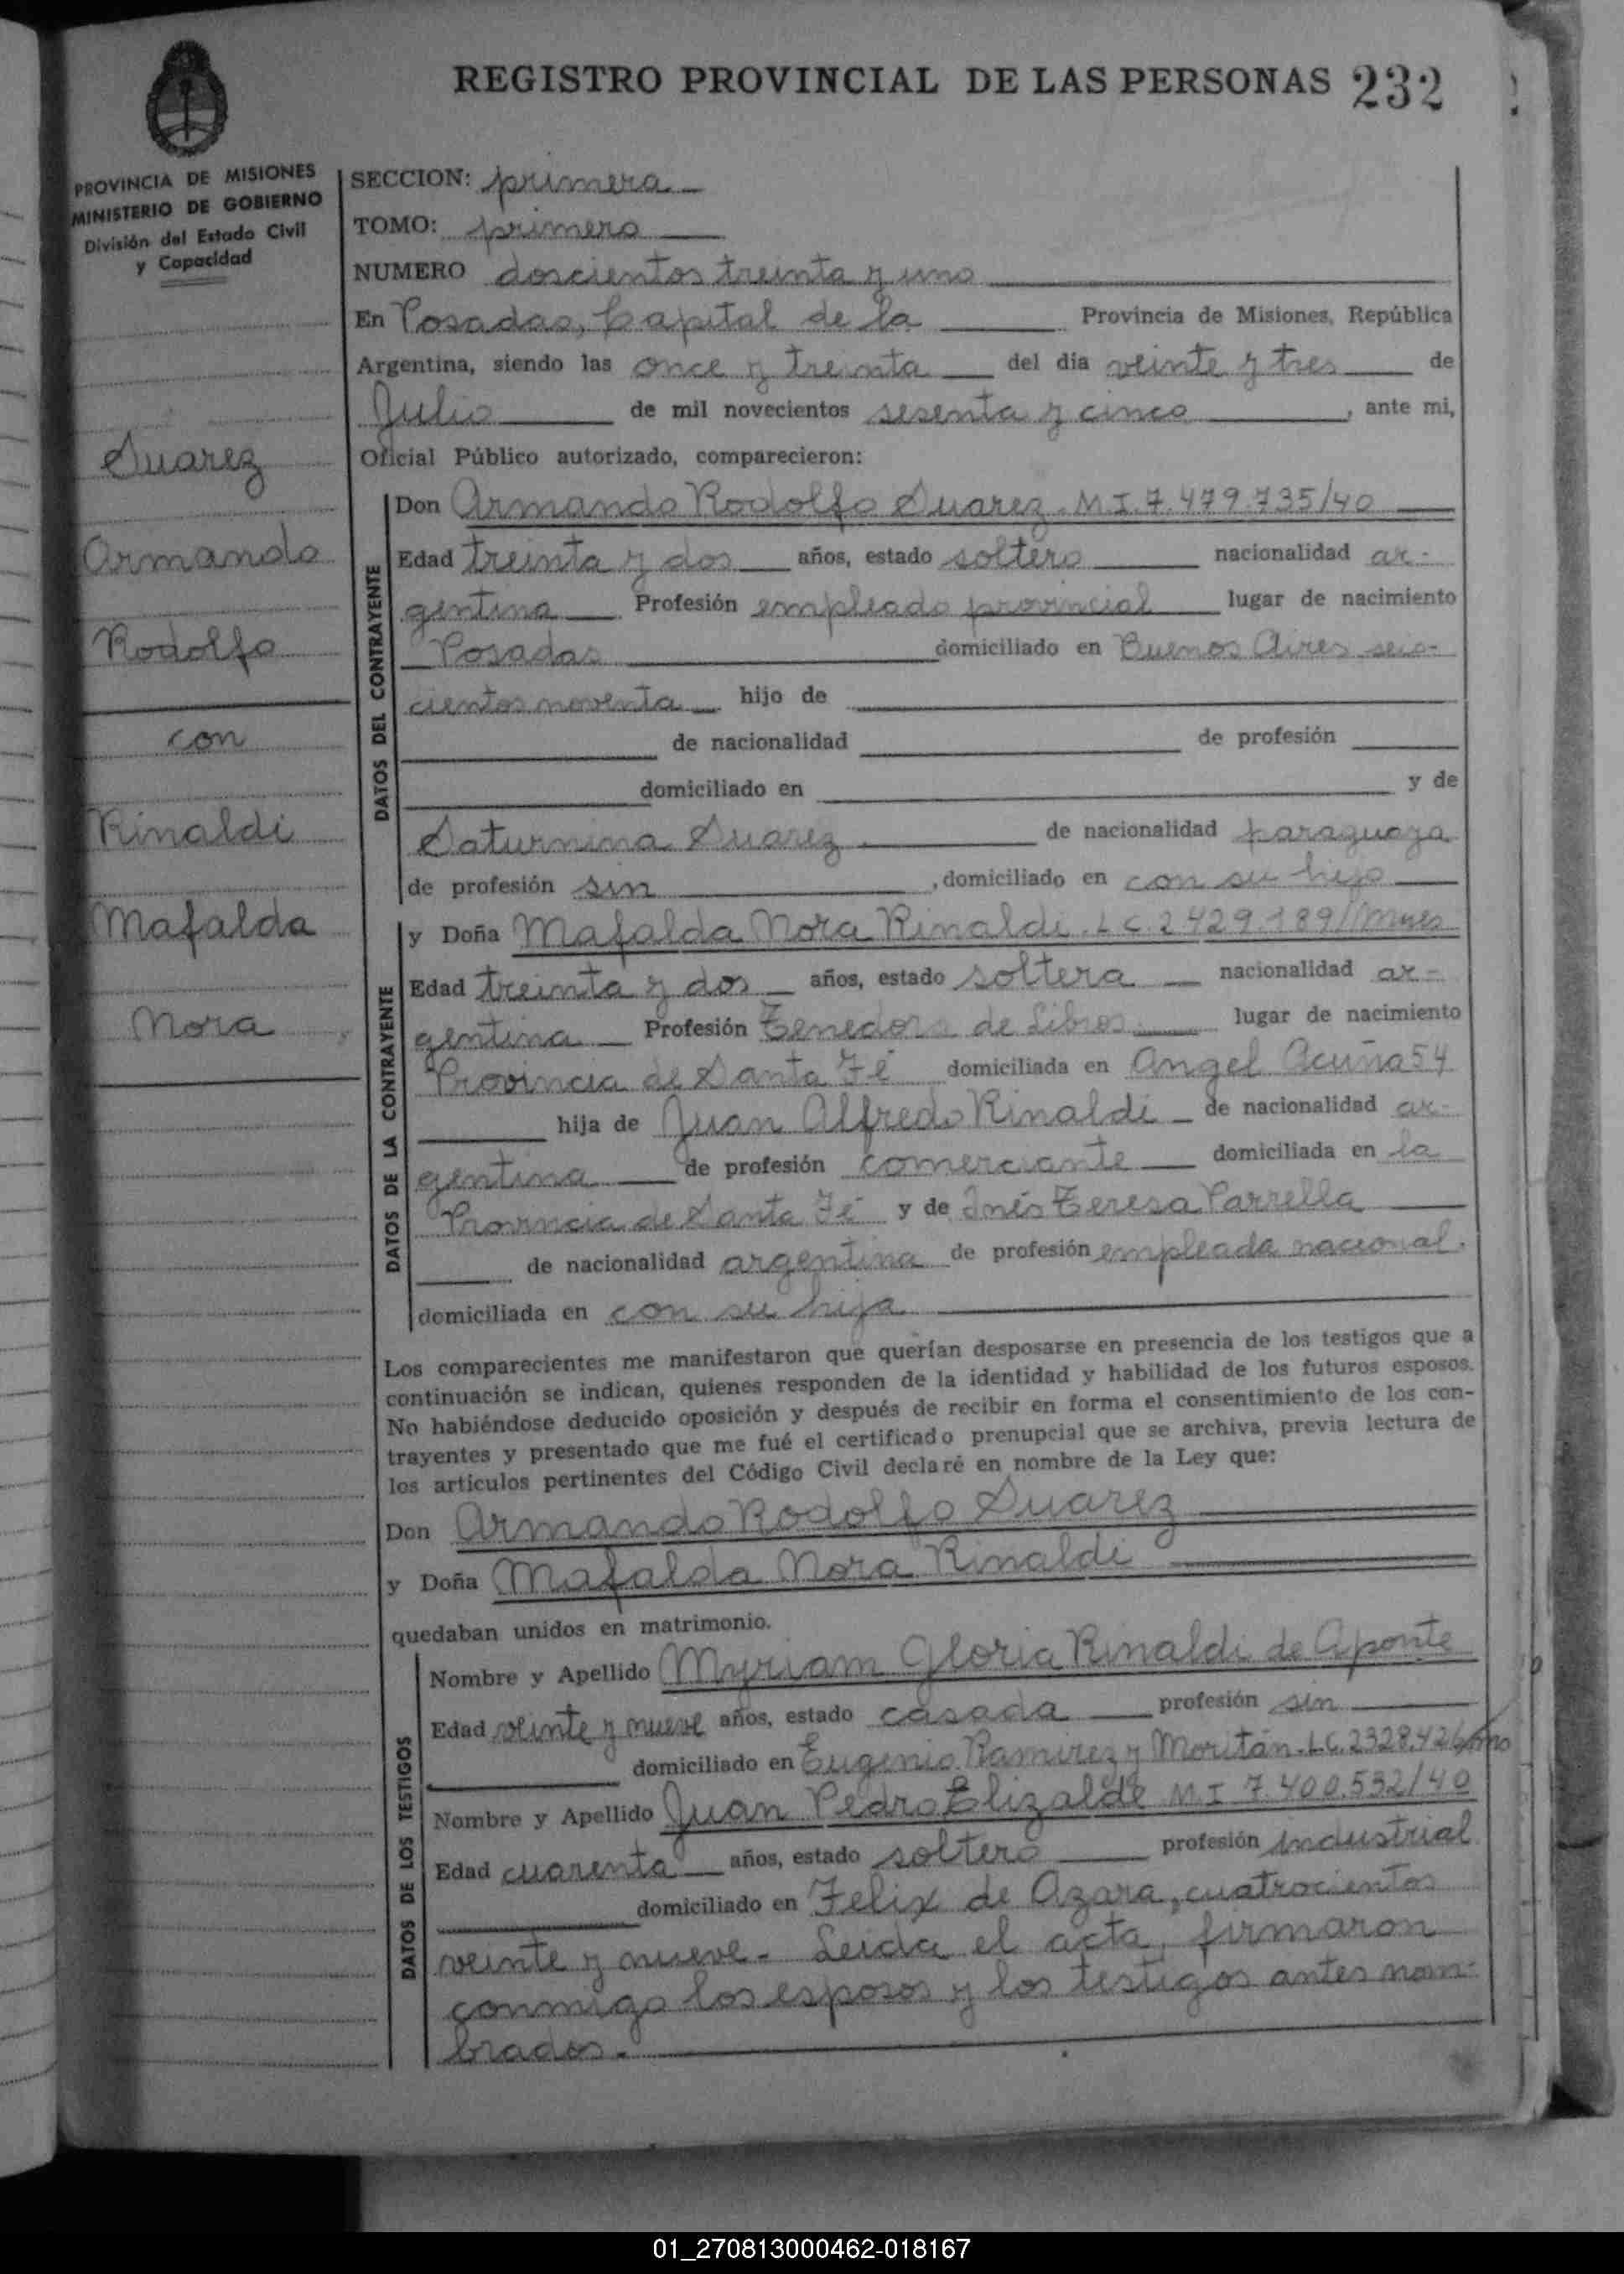 REGISTRO PROVINCIAL DE LAS PERSONAS 232
PROVINCIA DE MISIONES
MINISTERIO DE GOBIERNO
División del Estado Civil
y Capacidad
Suarez
Armando
Rodolfo
con
Rinaldi
Mafalda
Nora
SECCION: primera
TOMO: primero
NUMERO doscientos treinta y uno
En Posadas, Capital de la Provincia de Misiones, República
Argentina, siendo las once y treinta del día veinte y tres de
Julio de mil novecientos sesenta y cinco, ante mi,
Oficial Público autorizado, comparecieron:
DATOS DEL CONTRAYENTE
Don Armando Rodolfo Suarez. M.I. 7.479.735/40
Edad treinta y dos años, estado soltero nacionalidad ar-
gentina Profesión empleado provincial lugar de nacimiento
Posadas domiciliado en Buenos Aires seis-
cientos noventa hijo de
de nacionalidad de profesión
domiciliado en y de
Saturnina Suarez de nacionalidad paraguaya
de profesión sin, domiciliado en con su hijo
DATOS DE LA CONTRAYENTE
y Doña Mafalda Nora Rinaldi. L C. 2.429.189/Mnes
Edad treinta y dos años, estado soltera nacionalidad ar-
gentina Profesión Tenedora de Libros lugar de nacimiento
Provincia de Santa Fé domiciliada en Angel Acuña 54
hija de Juan Alfredo Rinaldi de nacionalidad ar-
gentina de profesión comerciante domiciliada en la
Provincia de Santa Fé y de Inés Teresa Parrella
de nacionalidad argentina de profesión empleada nacional.
domiciliada en con su hija
Los comparecientes me manifestaron que querían desposarse en presencia de los testigos que a
continuación se indican, quienes responden de la identidad y habilidad de los futuros esposos.
No habiéndose deducido oposición y después de recibir en forma el consentimiento de los con-
trayentes y presentado que me fué el certificado prenupcial que se archiva, previa lectura de
los artículos pertinentes del Código Civil declaré en nombre de la Ley que:
Don Armando Rodolfo Suarez
y Doña Mafalda Nora Rinaldi
quedaban unidos en matrimonio.
DATOS DE LOS TESTIGOS
Nombre y Apellido Myriam Gloria Rinaldi de Aponte
Edad veinte y nueve años, estado casada profesión sin
domiciliado en Eugenio Ramirez y Moritán. L.C. 2328.426
Nombre y Apellido Juan Pedro Elizalde M I 7.400.532/40
Edad cuarenta años, estado soltero profesión industrial
domiciliado en Felix de Azara, cuatrocientos
veinte y nueve. Leida el acta, firmaron
conmigo los esposos y los testigos antes nom-
brados.
01_270813000462-018167